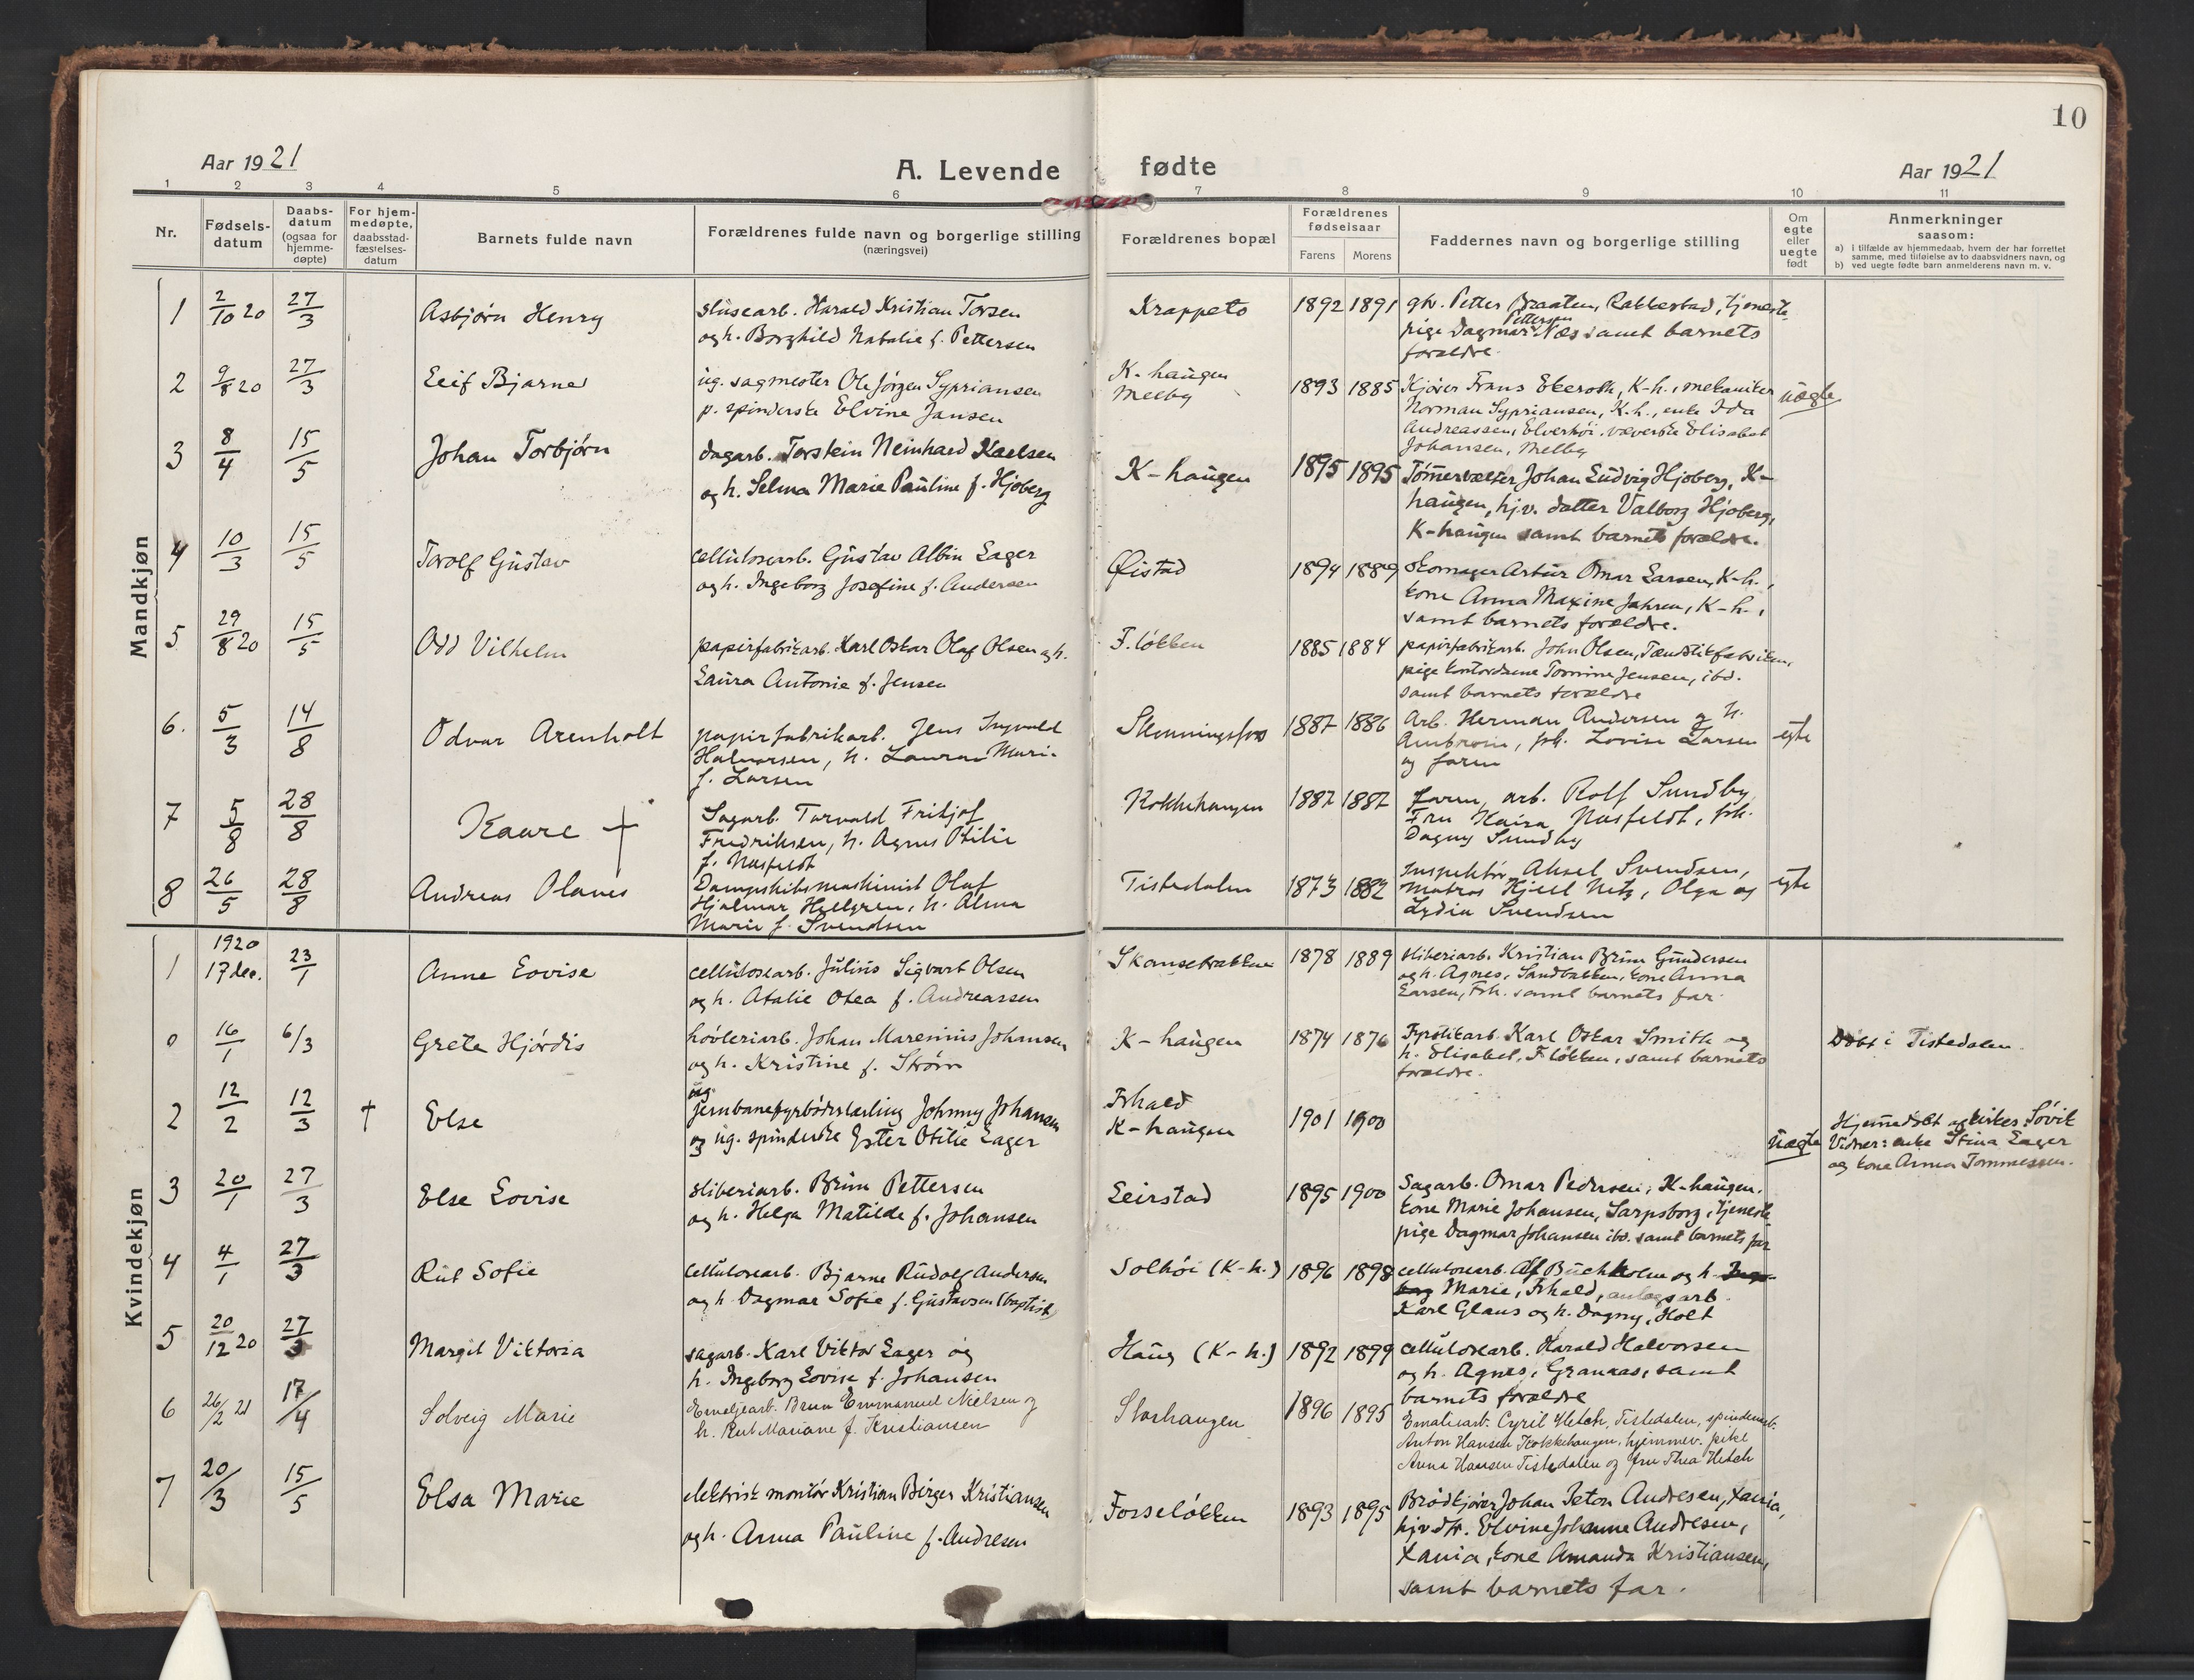 10
Aar 1921
A. Levende fødte
Aar 1921
1 2 3 4 5 6 7 8 9 10 11
Nr.
Fødsels-
datum
Daabs-
datum
(ogsaa for
hjemme-
døpte)
For hjem-
medøpte,
daabsstad-
fæstelses-
datum
Barnets fulde navn
Forældrenes fulde navn og borgerlige stilling
(næringsvei)
Forældrenes bopæl
Forældrenes
fødselsaar
Farens Morens
Faddernes navn og borgerlige stilling
Om
egte
eller
uegte
født
Anmerkninger
saasom:
a) i tilfælde av hjemmedaab, hvem der har forrettet
samme, med tilføielse av to daabsvidners navn, og
b) ved uegte fødte barn anmelderens navn m. v.
Mandkjøn
1 2/10 20 27/3 Asbjørn Henry
slusearb. Harald Kristian Torsen
og h. Borghild Natalie f. Pettersen
Krappeto 1892 1891
gbr. Petter Braaten, Rakkestad, tjeneste-
Pettersen
pige Dagmar Næs samt barnets
forældre.
2 9/8 20 27/3 Leif Bjarne
ug. sagmester Ole Jørgen Sypriansen
p. spinderske Elvine Jansen
K-haugen
Melby
1893 1885
Kjører Frans Ekeroth, K-h., mekaniker
Norman Sypriansen, K.h., enke Ida
Andreassen, Elverhøi, væverske Elisabet
Johansen, Melby
uegte
3 8/4 15/5 Johan Torbjørn
dagarb. Torstein Meinhard Karlsen
og h. Selma Marie Pauline f. Hjøberg
K-haugen 1895 1895
Tømmervælter Johan Ludvig Hjøberg, K-
haugen, hj.v. datter Valborg Hjøberg,
K-haugen samt barnets forældre.
4 10/3 15/5 Torolf Gustav
cellulosearb. Gustav Albin Lager
og h. Ingeborg Josefine f. Andersen
Øistad 1894 1889
Skomager Artur Omar Larsen, K-h.,
kone Anna Maxine Jahren, K-h.,
samt barnets forældre.
5 29/8 20 15/5 Odd Vilhelm
papirfabrikarb. Karl Oskar Olaf Olsen og h.
Laura Antonie f. Jensen
F.løkken 1885 1884
papirfabrikarb. John Olsen, Tændstikfabrikken,
pige kontordame Tomine Jensen, ibd.
samt barnets forældre
6. 5/3 14/8 Odvar Arenholt
papirfabrikarb. Jens Ingvald
Halvorsen, h. Laura Marie
f. Larsen
Skonningsfoss 1887 1886
Arb. Herman Andersen og h.
Ambrosia, frk. Lovise Larsen
og faren
egte
7 5/8 28/8 Kaare †
Sagarb. Torvald Fritjof
Fredriksen, h. Agnes Otilie
f. Nusfeldt
Kokkehaugen 1887 1887
Faren, arb. Rolf Sundby,
Fru Kaisa Nusfeldt, frk.
Dagny Sundby
8 26/5 28/8 Andreas Olanes
Dampskibsmaskinist Olaf
Hjalmar Hellgren, h. Alma
Marie f. Svendsen
Tistedalen 1873 1882
Inspektør Aksel Svendsen,
Matros Kjell Netz, Olga og
Lydia Svendsen
egte
Kvindekjøn
1 1920
17 dec. 23/1 Anne Lovise
cellulosearb. Julius Sigvart Olsen
og h. Atalie Otea f. Andreassen
Skansebakken 1878 1889
sliberiarb. Kristian Brun Gundersen
og h. Agnes, Sandbakken, kone Anna
Larsen, Frh. samt barnets far.
0 16/1 6/3 Grete Hjørdis
høvleriarb. Johan Marenius Johansen
og h. Kristine f. Strøm
K-haugen 1874 1876
Fyrstikarb. Karl Oskar Smith og
h. Elisabet, F.løkken, samt barnets
forældre.
Døbt i Tistedalen.
2 12/2 12/3 † Else
ug.
jernbanefyrbøderlærling Johnny Johansen
og ug. spinderske Ester Otilie Lager
Frhald
K-haugen
1901 1900
uegte
Hjemmedøbt av Søvik
Vidner: enke Stina Lager
og kone Anna Tommessen.
3 20/1 27/3 Else Lovise
sliberiarb. Brun Pettersen
og h. Helga Matilde f. Johansen
Leirstad 1895 1900
Sagarb. Omar Pedersen, K-haugen.
kone Marie Johansen, Sarpsborg, tjeneste-
pige Dagmar Johansen ibd. samt barnets far
4 4/1 27/3 Rut Sofie
cellulosearb. Bjarne Rudolf Andersen
og h. Dagmar Sofie f. Gustavsen (baptist)
Solhøi (K-h.) 1896 1898
cellulosearb. Alf Buchholm og h.
Marie, Frhald, anlægsarb.
Karl Glans og h. Dagny, Holt
5 20/12 20 27/3 Margit Viktoria
sagarb. Karl Viktor Lager og
h. Ingeborg Lovise f. Johansen
Haug (K-h.) 1892 1899
cellulosearb. Harald Halvorsen
og h. Agnes, Granaas, samt
barnets forældre
6 26/2 21 17/4 Solveig Marie
Emeljearb. Brun Emmanuel Nielsen og
h. Rut Mariane f. Kristiansen
Storhaugen 1896 1895
Emaliearb. Cyril Hetch, Tistedalen, spinderiarb.
Anton Hansen Kokkehaugen, hjemmev. pike
Anna Hansen Tistedalen og fru Thea Hetch
7 20/3 15/5 Elsa Marie
elektrisk montør Kristian Birger Kristiansen
og h. Anna Pauline f. Andresen
Forseløkken 1893 1895
Brødkjører Johan Anton Andresen, Xania,
hjv dtr. Elvine Johanne Andresen,
Xania, kone Amanda Kristiansen,
samt barnets far.